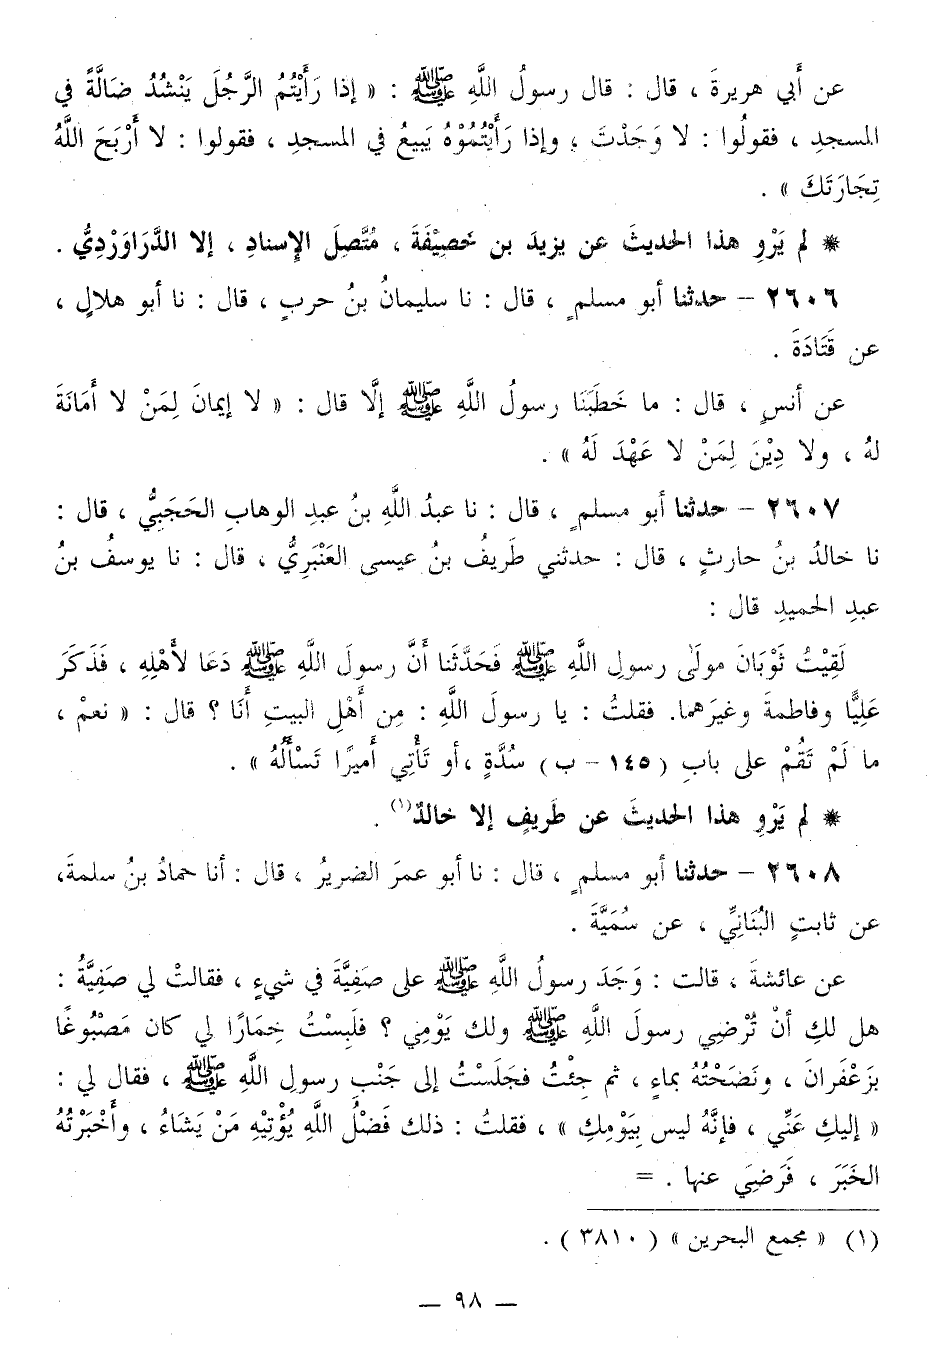 عن أَبي هريرةَ ، قال : قال رسولُ اللَّهِ ﷺ : « إذا رَأَيْتُمُ الرَّجُلَ يَنْشُدُ ضَالَّةً في
المسجدِ ، فقولُوا : لا وَجَدْتَ ، وإذا رَأَيْتُمُوْهُ يَبيعُ في المسجدِ ، فقولوا : لا أَرْبَحَ اللَّهُ
تِجَارَتَكَ » .
* لم يَرْوِ هذا الحديثَ عن يزيدَ بن خَصِيْفَةَ ، مُتَّصِلَ الإِسنادِ ، إلا الدَّرَاوَرْدِيُّ .
٢٦٠٦ – حدثنا أبو مسلمٍ ، قال : نا سليمانُ بنُ حربٍ ، قال : نا أبو هلالٍ ،
عن قَتَادَةَ .
عن أنسٍ ، قال : ما خَطَبَنَا رسولُ اللَّهِ ﷺ إلَّا قال : « لا إيمانَ لِمَنْ لا أَمَانَةَ
لهُ ، ولا دِيْنَ لِمَنْ لا عَهْدَ لَهُ » .
٢٦٠٧ – حدثنا أبو مسلمٍ ، قال : نا عبدُ اللَّهِ بنُ عبدِ الوهابِ الحَجَبِيُّ ، قال :
نا خالدُ بنُ حارثٍ ، قال : حدثني طَريفُ بنُ عيسى العَنْبَرِيُّ ، قال : نا يوسفُ بنُ
عبدِ الحميدِ قال :
لَقِيْتُ ثَوْبَانَ مولَىٰ رسولِ اللَّهِ ﷺ فَحَدَّثَنا أَنَّ رسولَ اللَّهِ ﷺ دَعَا لأَهْلِهِ ، فَذَكَرَ
عَلِيًّا وفاطمةَ وغيرَهما. فقلتُ : يا رسولَ اللَّهِ : مِن أَهْلِ البيتِ أَنَا ؟ قال : « نعمْ ،
ما لَمْ تَقُمْ على بابِ (١٤٥ – ب) سُدَّةٍ ،أو تَأْتِي أَميرًا تَسْأَلُهُ » .
* لم يَرْوِ هذا الحديثَ عن طَريفٍ إلا خالدٌ(١) .
٢٦٠٨ – حدثنا أبو مسلمٍ ، قال : نا أبو عمرَ الضريرُ ، قال : أنا حمادُ بنُ سلمةَ،
عن ثابتٍ البُنَانِيِّ ، عن سُمَيَّةَ .
عن عائشةَ ، قالت : وَجَدَ رسولُ اللَّهِ ﷺ على صَفِيَّةَ في شيءٍ ، فقالتْ لي صَفِيَّةُ :
هل لكِ أنْ تُرْضِي رسولَ اللَّهِ ﷺ ولك يَوْمِي ؟ فلَبِسْتُ خِمَارًا لي كان مَصْبُوغًا
بزَعْفَرانَ ، ونَضَحْتُهُ بماءٍ ، ثم جِئْتُ فجَلَسْتُ إلى جَنْبِ رسولِ اللَّهِ ﷺ ، فقال لي :
« إليكِ عَنِّي ، فإنَّهُ ليس بِيَوْمِكِ » ، فقلتُ : ذلك فَضْلُ اللَّهِ يُؤْتِيْهِ مَنْ يَشَاءُ ، وأَخْبَرْتُهُ
الخَبَرَ ، فَرَضِيَ عنها . =
(١) « مجمع البحرين » ( ٣٨١٠ ) .
– ٩٨ –